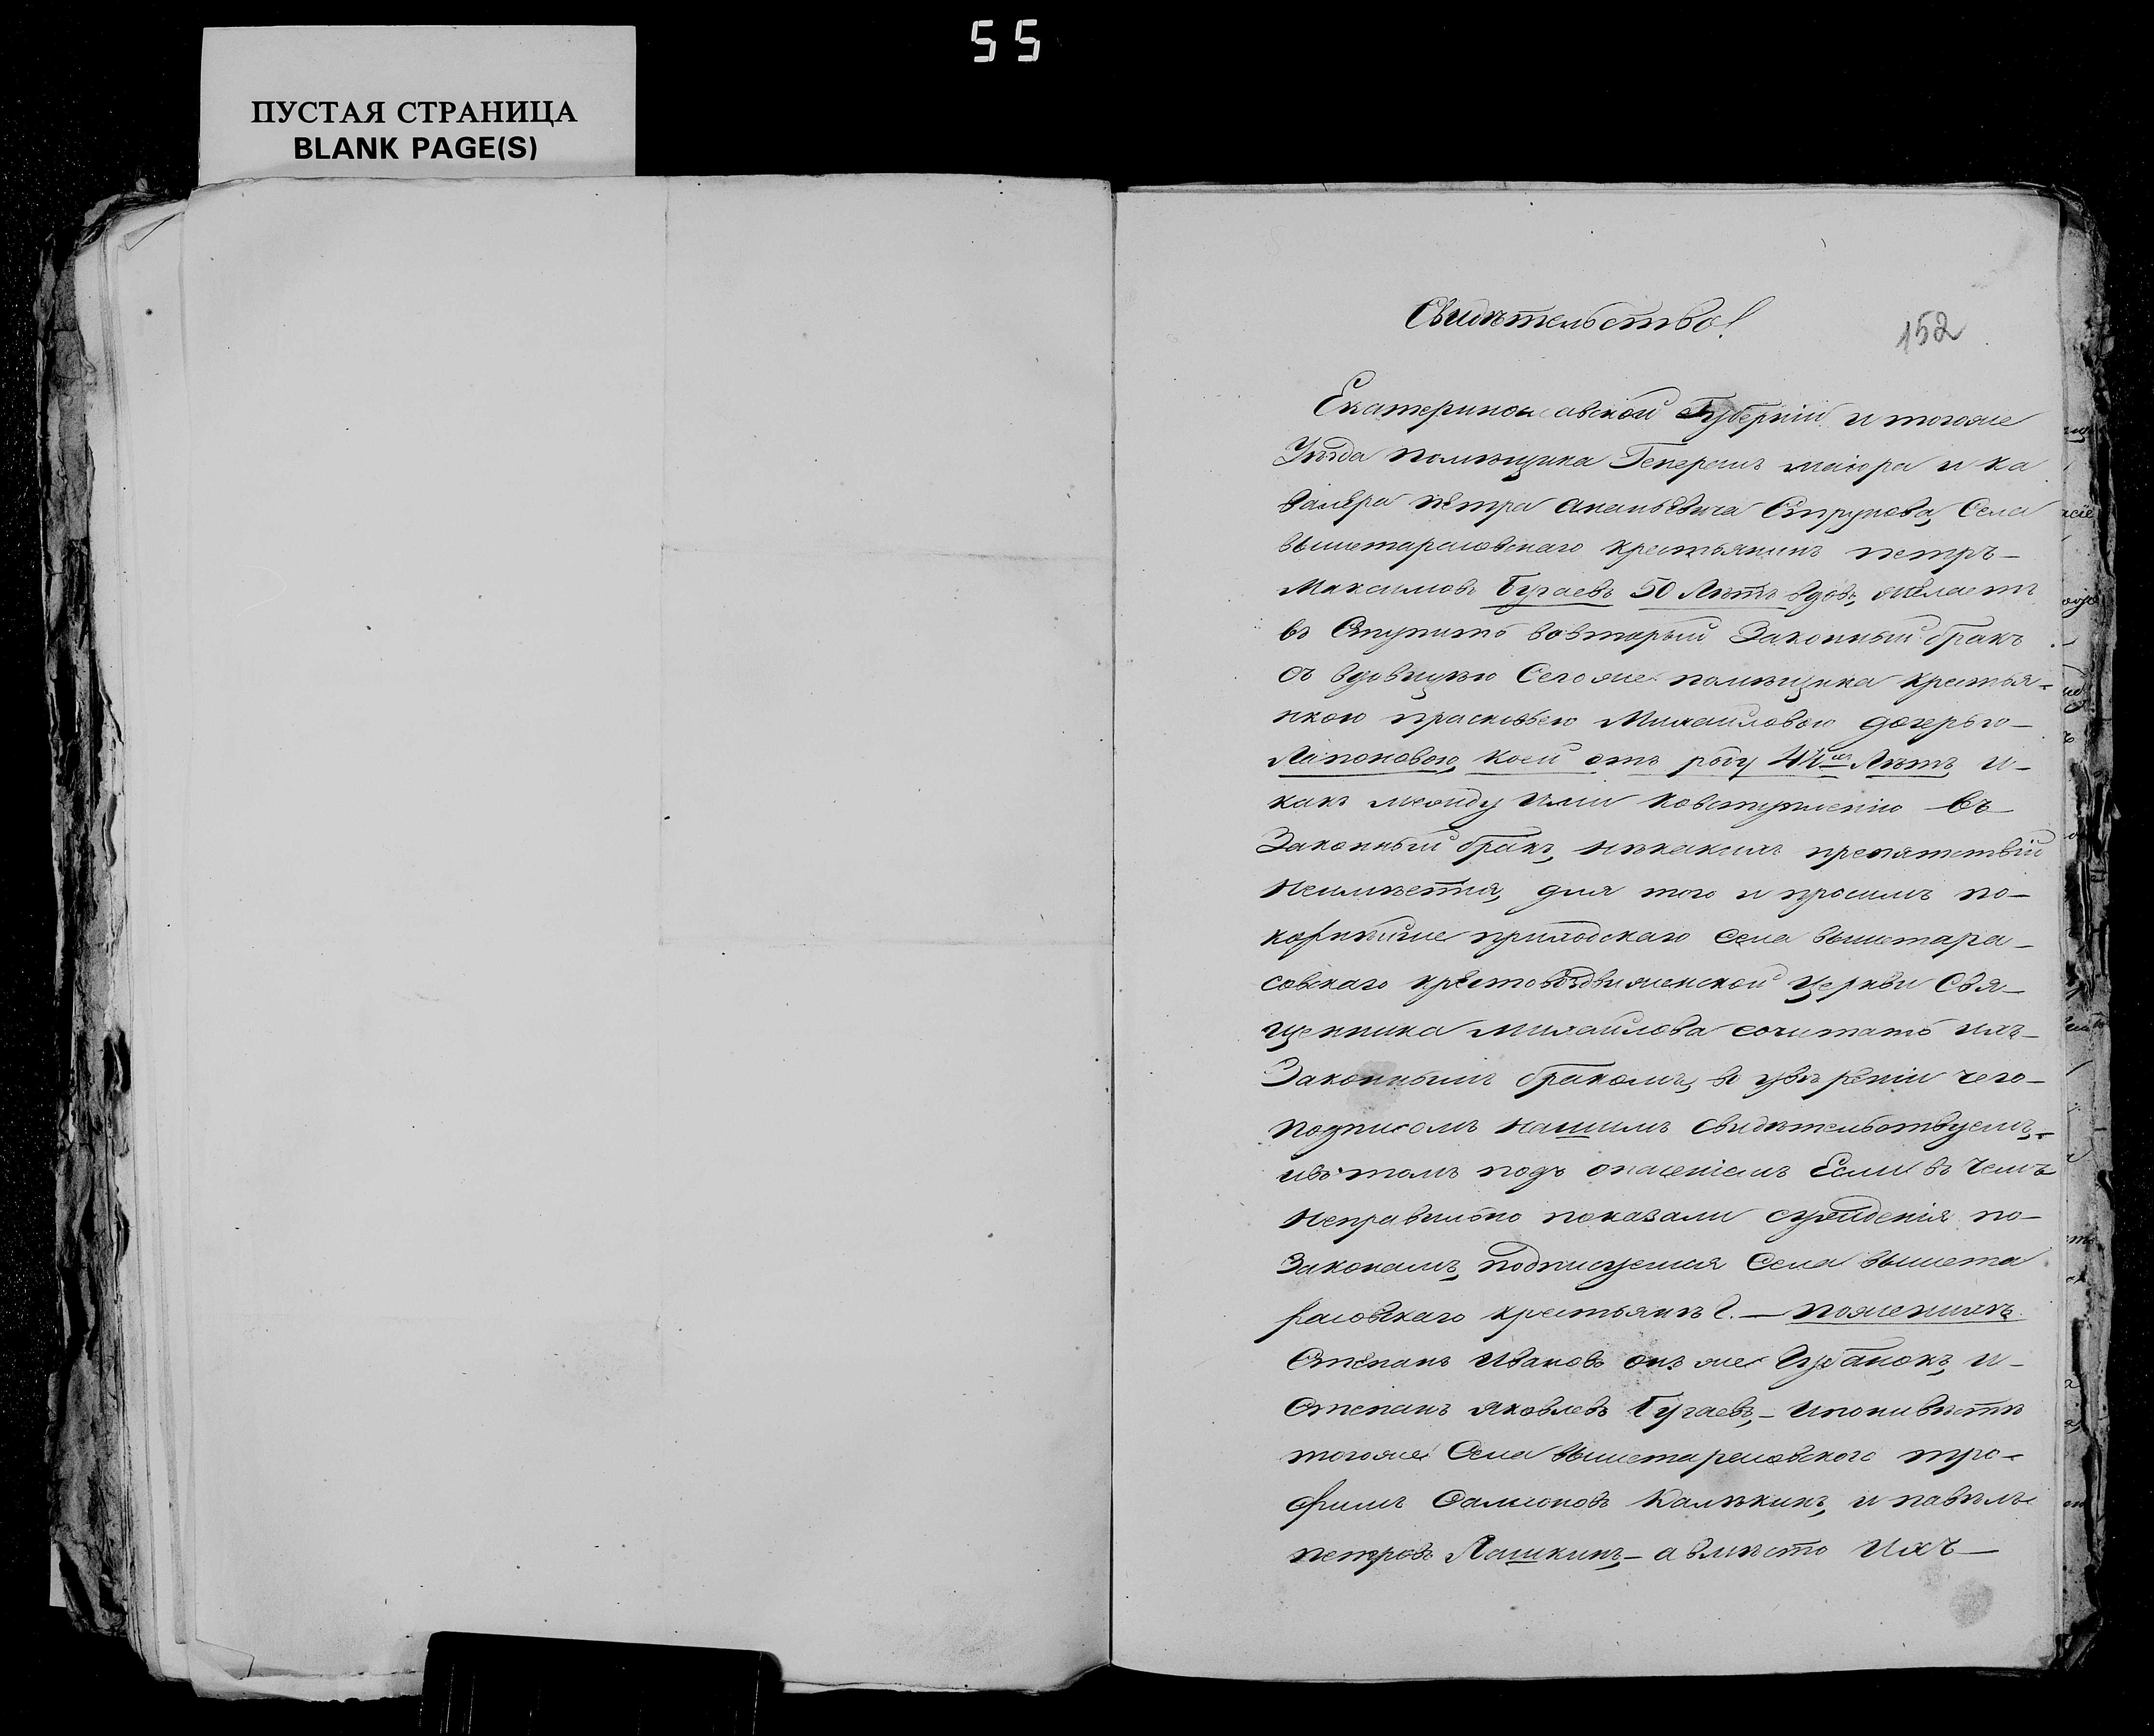 55
ПУСТАЯ СТРАНИЦА
BLANK PAGE(S)
Свидѣтельство!
152
Екатеринославской Губерніи и тогоже
Уѣзда помѣщика Генералъ маіора и ка
валера петра ананьевича Струкова, Села
вышетарасовскаго крестьянинъ петръ-
Максимовъ Бугаевъ 50 лѣтъ вдовъ, желаетъ
въ Ступить вовторый Законный бракъ
съ вдовицею Сегоже помѣщика крестья-
нкою прасковьею Михайловою дочерью-
Лапоновою, коей отъ роду 44 лѣтъ, и-
какъ между ими ковступленію въ-
Законный бракъ, нѣкакихъ препятствій
Неимѣется, для того и просимъ по-
корнѣйше приходскаго села вышетара-
совскаго крестовоздвиженской церкви Свя-
щенника михайлова сочетать ихъ-
Законнымъ бракомъ, въ увѣреніи чего-
подписомъ нашимъ свидѣтельствуемъ,-
ивътомъ подъ опасеніемъ Если въ чемъ
неправильно показали сужденія по-
Законамъ, подписуемся Села вышета
расовскаго крестьянѣ.- поженихѣ
Степанъ Ивановъ онъ же, и-
Степанъ яковлевъ Бугаевъ,- Ипонивѣстѣ
тогоже Села вышетарасовского тро-
фимъ Самсоновъ Калѣкинъ, и павелъ
петровъ Лашкинъ,- а вмѣсто ихъ-